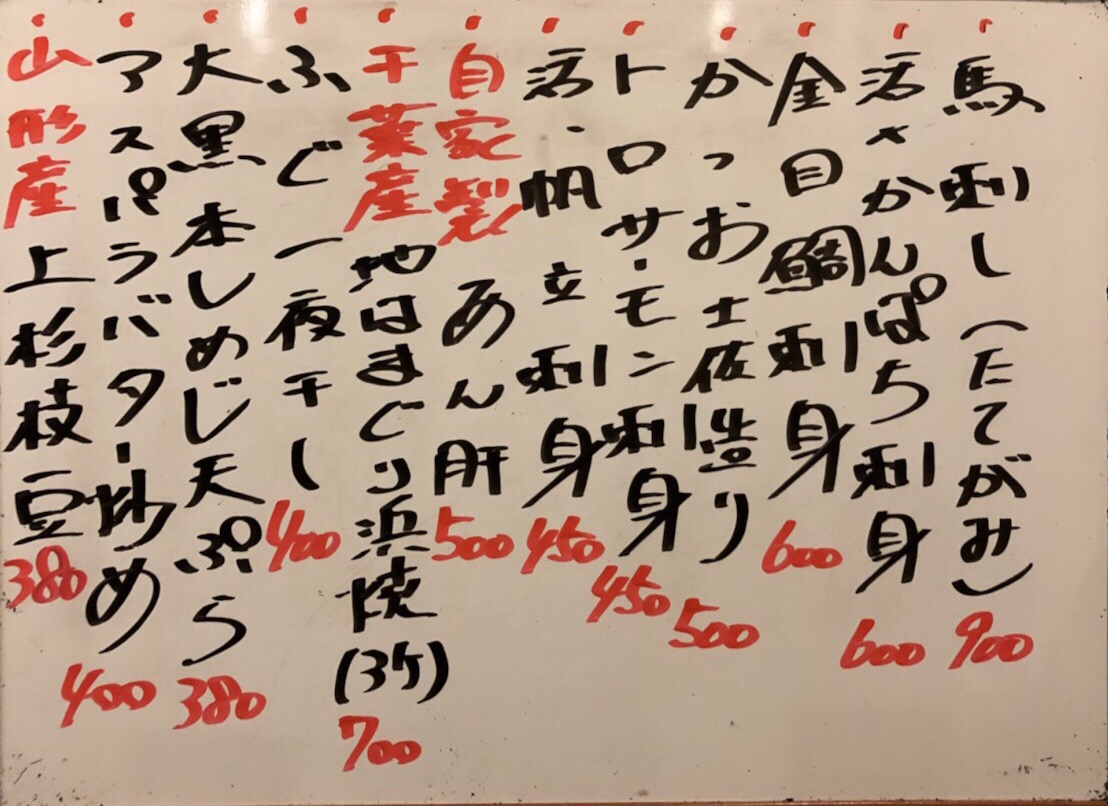 馬刺し(たてがみ)900
活〆かんぱち刺身600
金目鯛刺身600
かつお土佐造り500
トロサーモン刺身450
活・帆立刺身450
自家製あん肝500
千葉産地はまぐり浜焼(3ケ)700
ふぐ一夜干し400
大黒本しめじ天ぷら380
アスパラバター炒め400
山形産上杉枝豆380